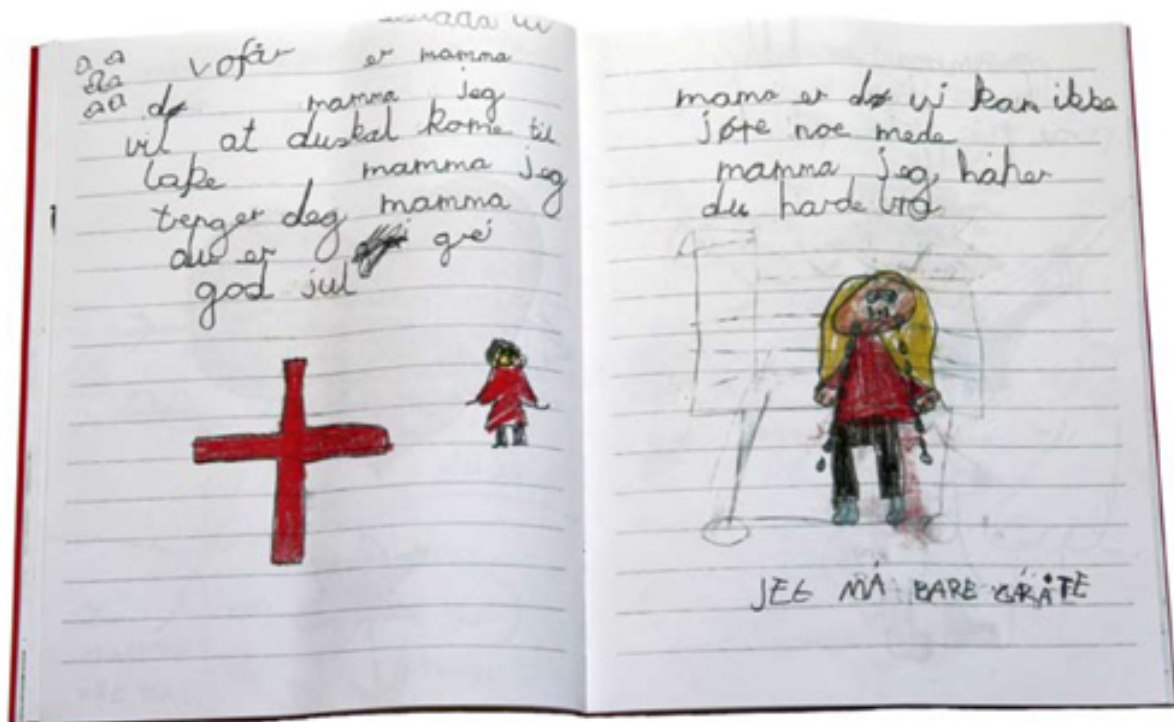 a a
a a
a a
vofår er mamma
dø mamma jeg
vil at duskal kome til
bake mamma jeg
trenger deg mamma
du er grei
god jul
mama er dø vi kan ikke
jøre noe mede
mamma jeg håher
du harde bra
JEG MÅ BARE GRÅTE